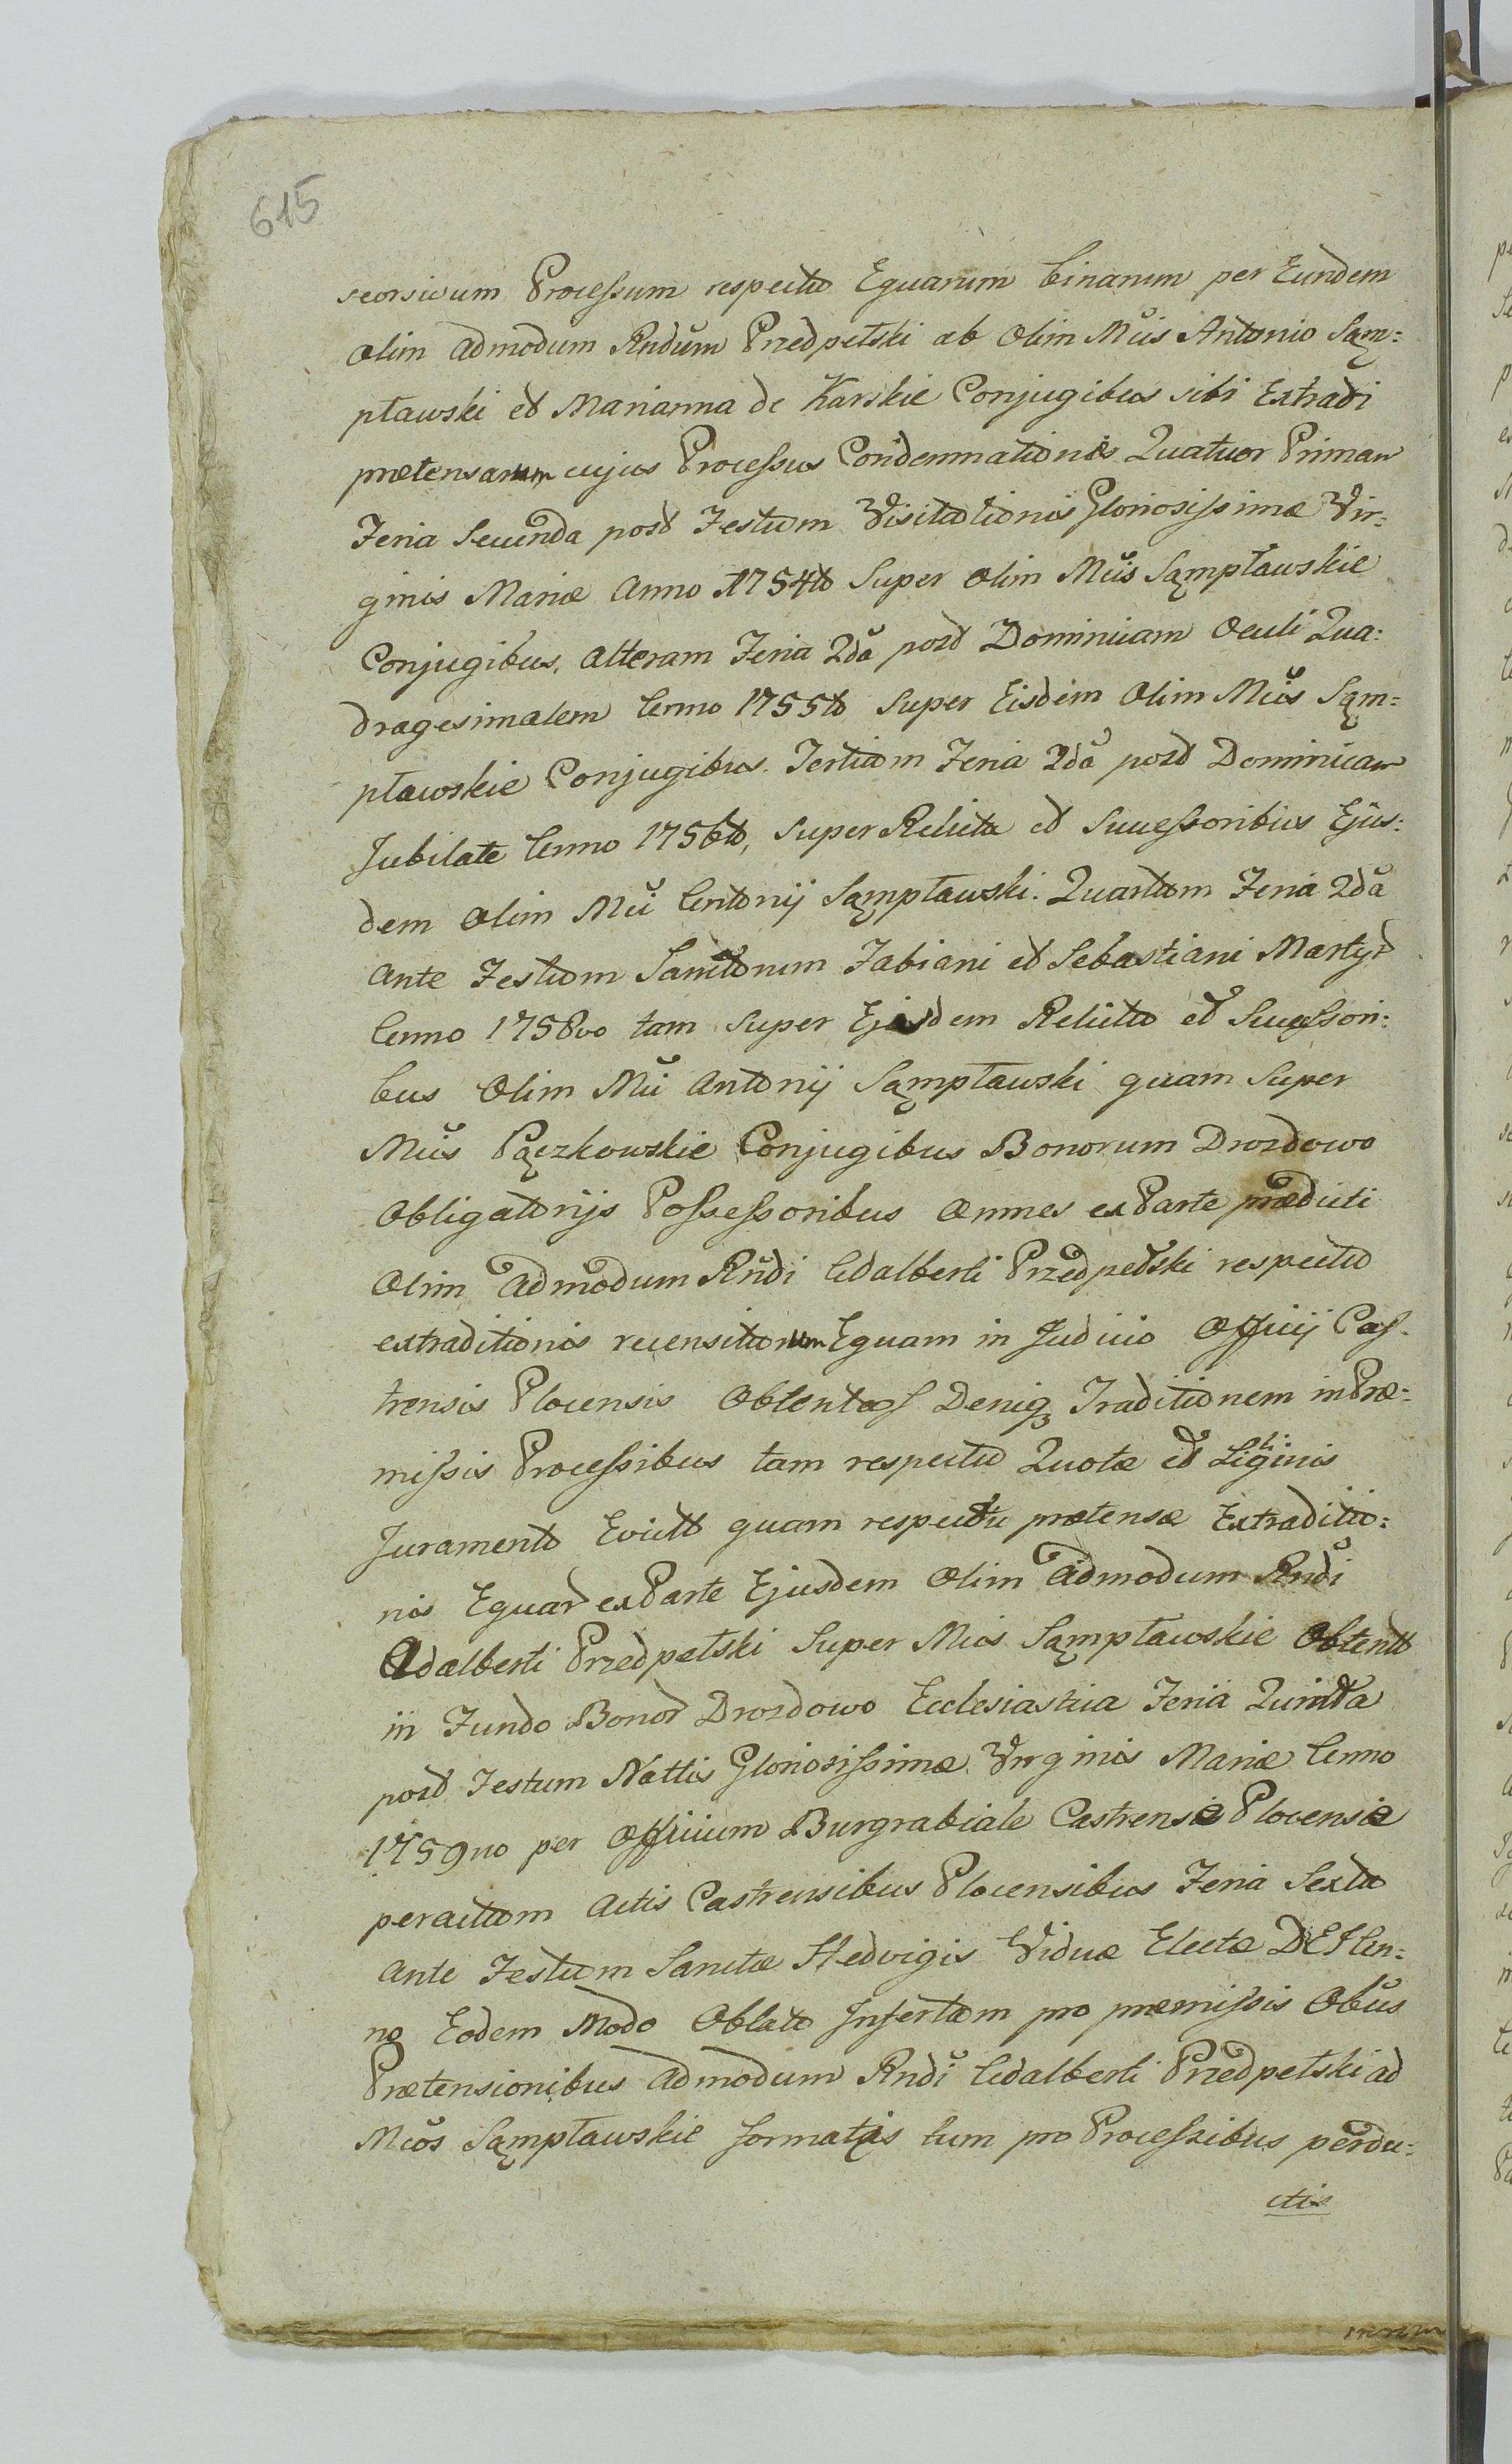 615
seorsivum Processum respectu Equarum binarum per Eundem
olim admodum Rndum Przedpełski ab olim Mcis Antonio Sąm=
pławski et Marianna de Karskie Conjugibus sibi Extradi
prætensarum cujus Processus Condemnationes Quatuor Primam
Feria Secunda post Festum Visitationis Gloriosissimæ Vir=
ginis Mariæ Anno 1754to Super olim Mcis Sąmpławskie
Conjugibus, alteram Feria 2da post Dominicam Oculi Qua=
dragesimalem Anno 1755to Super Eisdem olim Mcis Sąm=
pławskie Conjugibus. Tertiam Feria 2da post Dominicam
Jubilate Anno 1756to, Super Relicta et Successoribus Ejus=
dem olim Mci Antonij Sąmpławski. Quartam Feria 2da
ante Festum Sanctorum Fabiani et Sebastiani Martyr
Anno 1758vo tam Super Ejusdem Relicta et Successori=
bus Olim Mci Antonij Sąmpławski quam Super
Mcis Pączkowskie Conjugibus Bonorum Drozdowo
Obligatorijs Possessoribus omnes ex Parte prædicti
Olim admodum Rndi Adalberti Przedpełski respectu
extraditionis recensitarum Equam in Judicio Officij Cas=
trensis Plocensis Obtentas Deniq Traditionem in Præ=
missis Processibus tam respectu Quotæ et Liginis
ti
Juramento Evictt quam respectu prætensæ Extraditio=
nis Equar ex Parte Ejusdem Olim admodum Rndi
Adalberti Przedpełski Super Mcis Sąmpławskie Obtentt
in Fundo Bonor Drozdowo Ecclesiastica Feria Quinta
post Festum Nattis Gloriosissimæ Virginis Mariæ Anno
1759no per Officium Burgrabiale Castrense Plocense
peractam actis Castrensibus Plocensibus Feria Sexta
ante Festum Sanctæ Hedvigis Viduæ Electæ DEJ An=
no Eodem Modo Oblatæ Insertam pro præmissis Obus
Prætensionibus admodum Rndi Adalberti Przedpełski ad
Mcos Sąmpławskie formatis tum pro Processibus perdu=
ctis